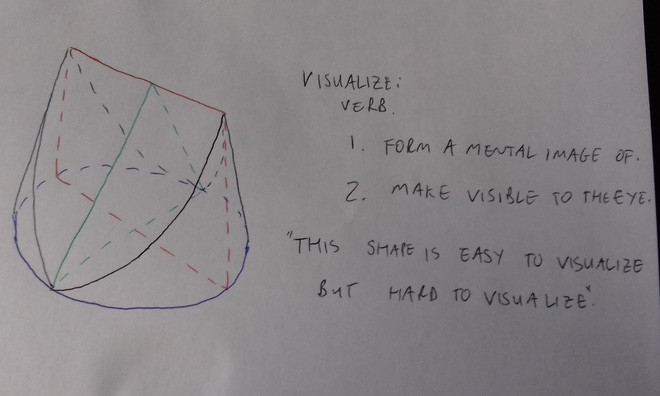 VISUALIZE:
VERB.
1. FORM A MENTAL IMAGE OF.
2. MAKE VISIBLE TO THE EYE.
"THIS SHAPE IS EASY TO VISUALIZE
BUT HARD TO VISUALIZE".